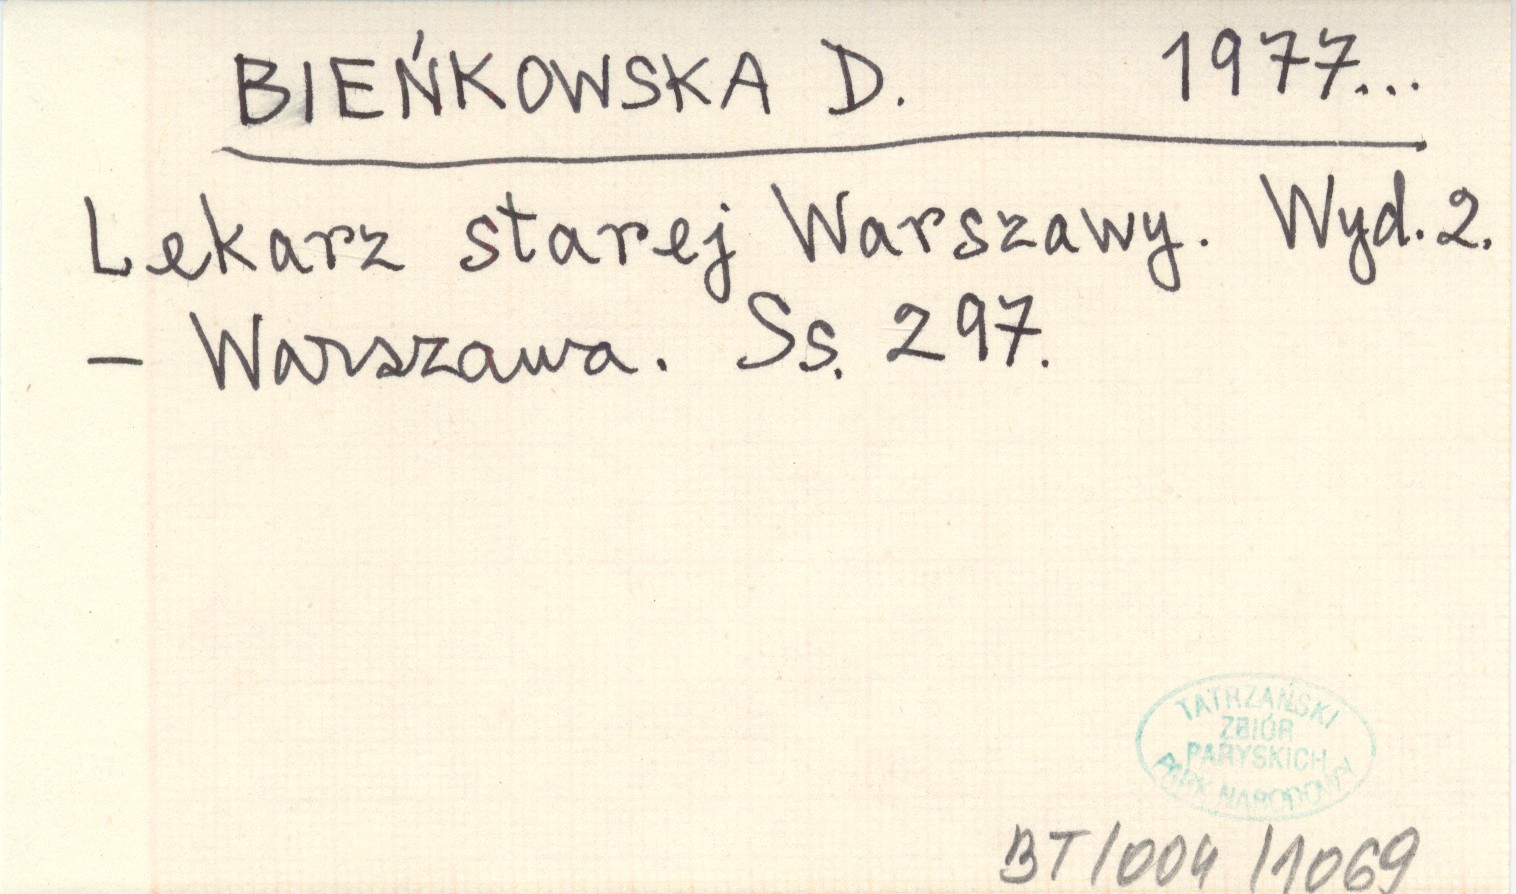 BIEŃKOWSKA D. 1977...
Lekarz starej Warszawy. Wyd. 2.
– Warszawa. Ss. 297.
TATRZAŃSKI
ZBIÓR
PARYSKICH
PARK NARODOWY
BT/004/1069